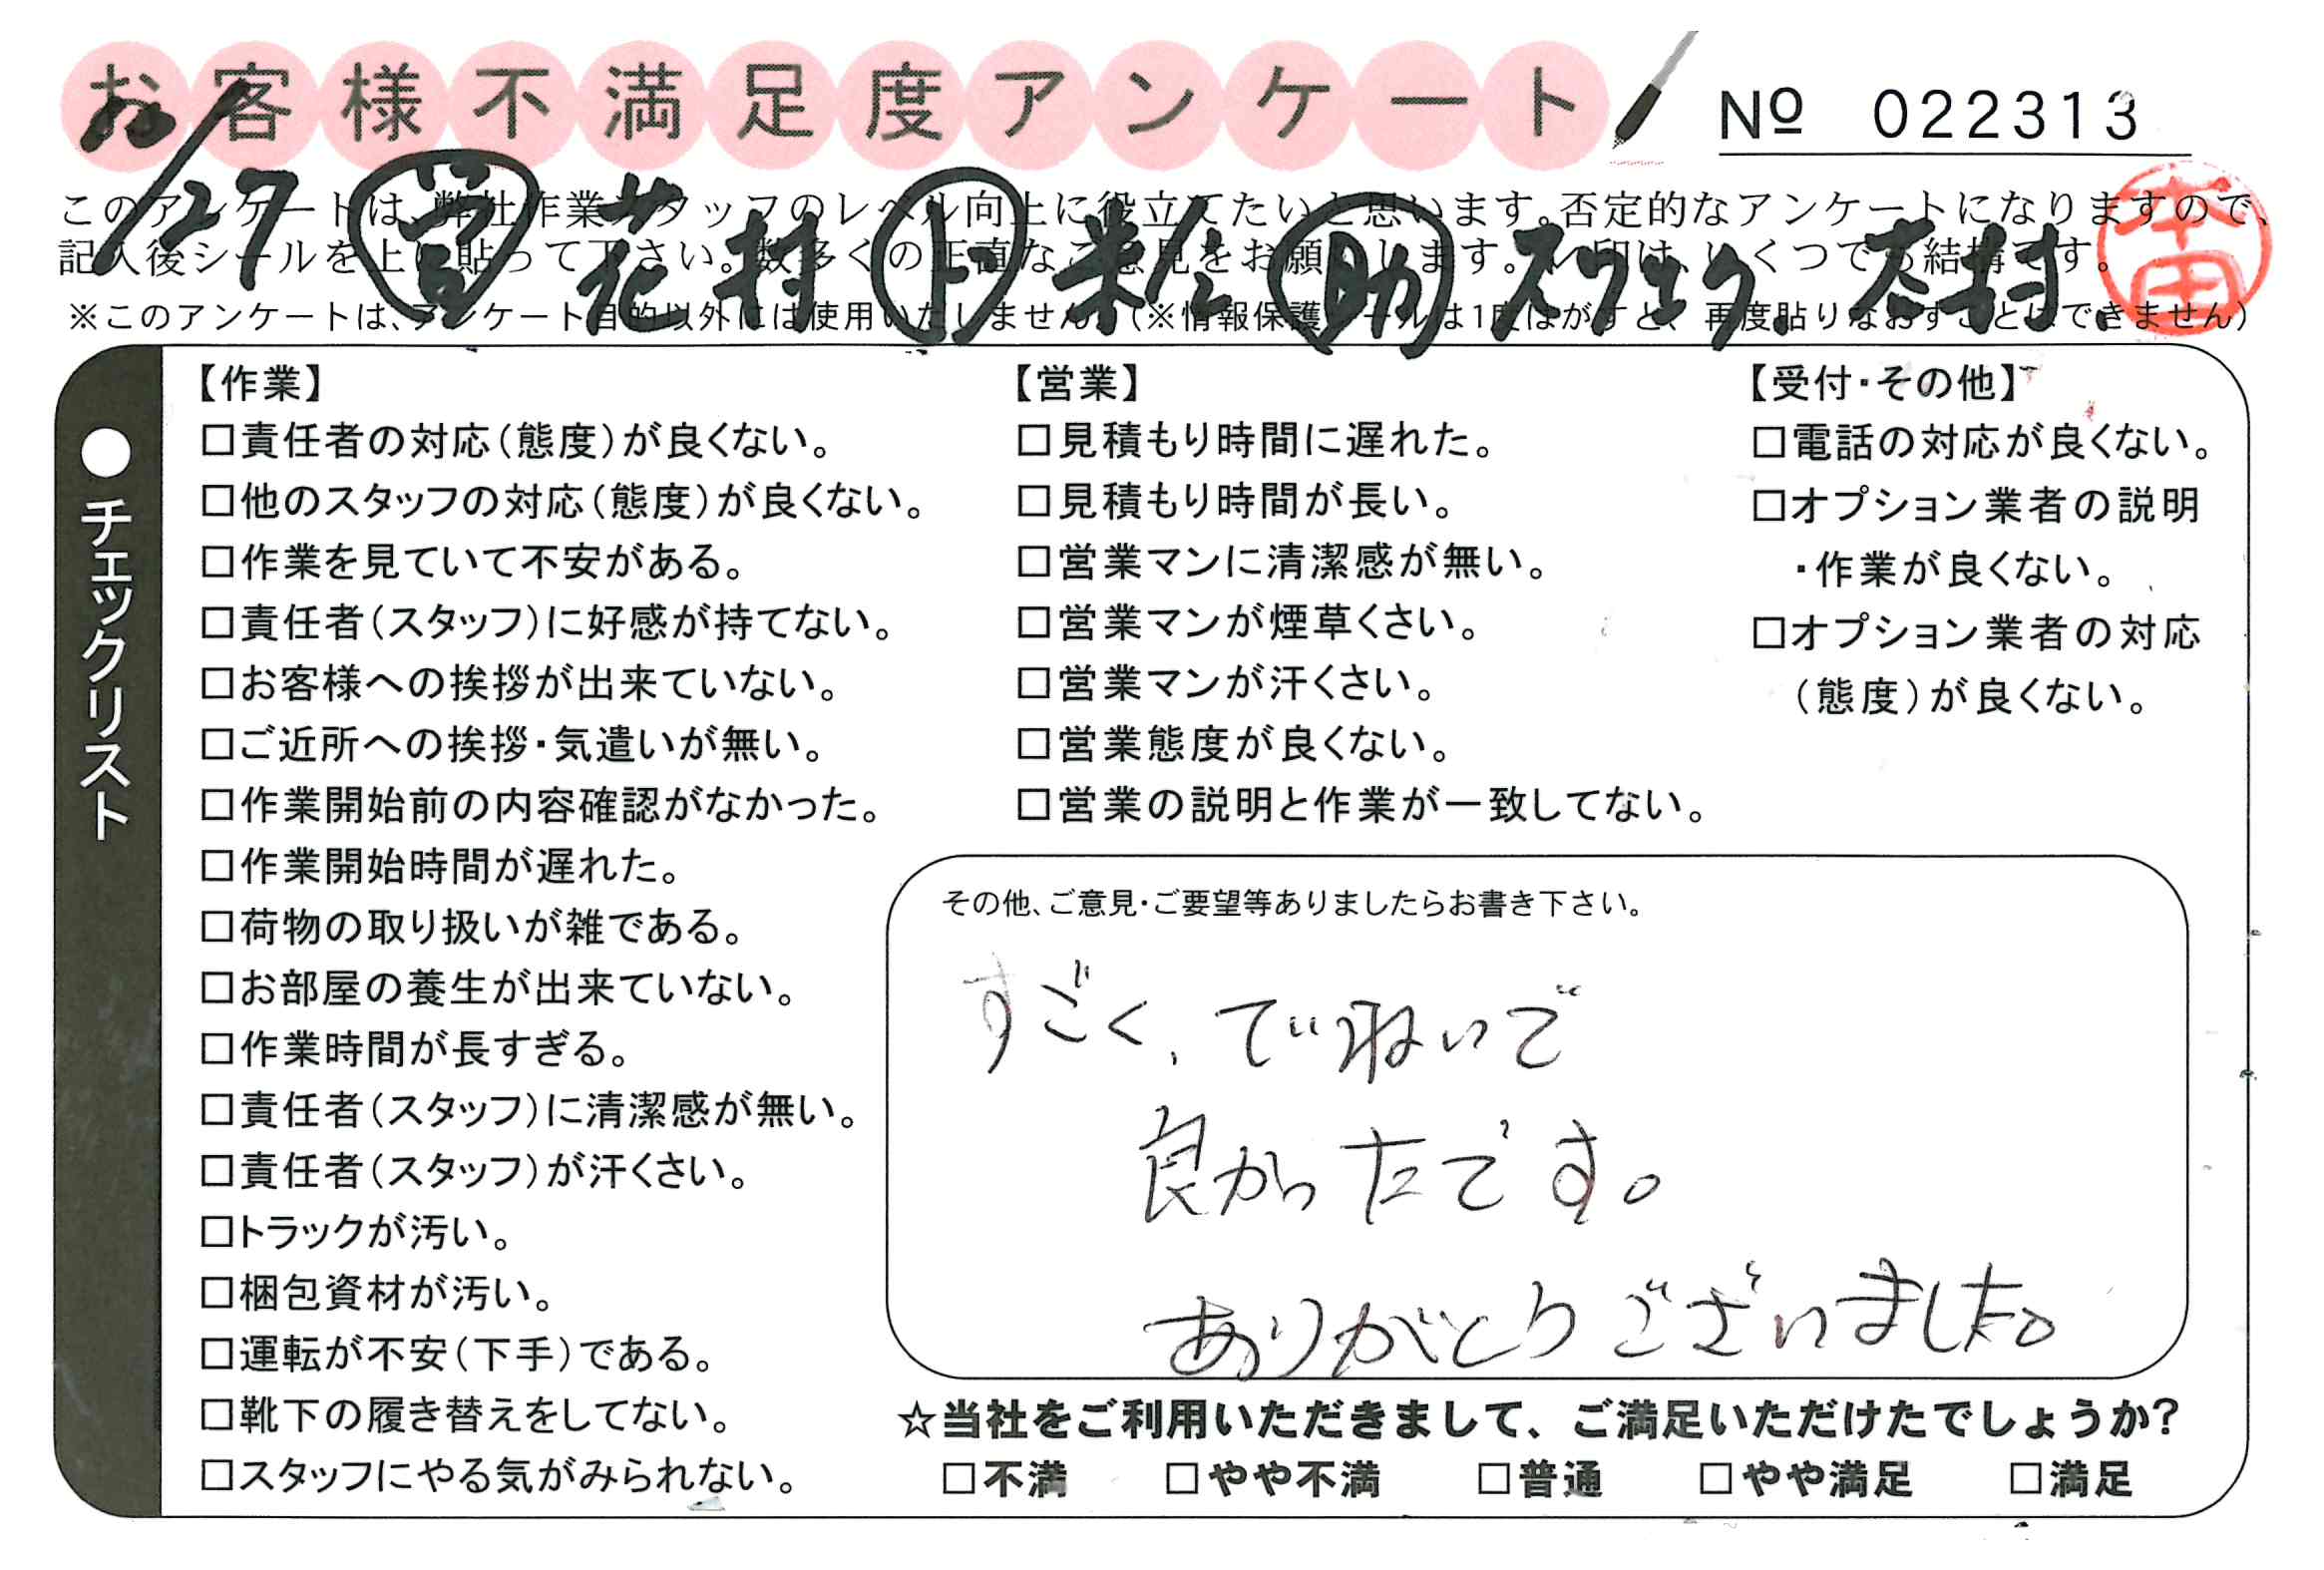 お客様不満足度アンケート
№ 022313
/27 営 花村 ト 米倉 助 スウェク. 志村.
本田
このアンケートは、弊社作業スタッフのレベル向上に役立てたいと思います。否定的なアンケートになりますので、
記入後シールを上に貼って下さい。数多くの正直なご意見をお願いします。レ印は、いくつでも結構です。
※このアンケートは、アンケート目的以外には使用いたしません。(※情報保護シールは1度はがすと、再度貼りなおすことはできません)
●チェックリスト
【作業】
□責任者の対応(態度)が良くない。
□他のスタッフの対応(態度)が良くない。
□作業を見ていて不安がある。
□責任者(スタッフ)に好感が持てない。
□お客様への挨拶が出来ていない。
□ご近所への挨拶・気遣いが無い。
□作業開始前の内容確認がなかった。
□作業開始時間が遅れた。
□荷物の取り扱いが雑である。
□お部屋の養生が出来ていない。
□作業時間が長すぎる。
□責任者(スタッフ)に清潔感が無い。
□責任者(スタッフ)が汗くさい。
□トラックが汚い。
□梱包資材が汚い。
□運転が不安(下手)である。
□靴下の履き替えをしてない。
□スタッフにやる気がみられない。
【営業】
□見積もり時間に遅れた。
□見積もり時間が長い。
□営業マンに清潔感が無い。
□営業マンが煙草くさい。
□営業マンが汗くさい。
□営業態度が良くない。
□営業の説明と作業が一致してない。
【受付・その他】
□電話の対応が良くない。
□オプション業者の説明
・作業が良くない。
□オプション業者の対応
(態度)が良くない。
その他、ご意見・ご要望等ありましたらお書き下さい。
すごく、ていねいで
良かったです。
ありがとうございました。
☆当社をご利用いただきまして、ご満足いただけたでしょうか?
□不満 □やや不満 □普通 □やや満足 □満足